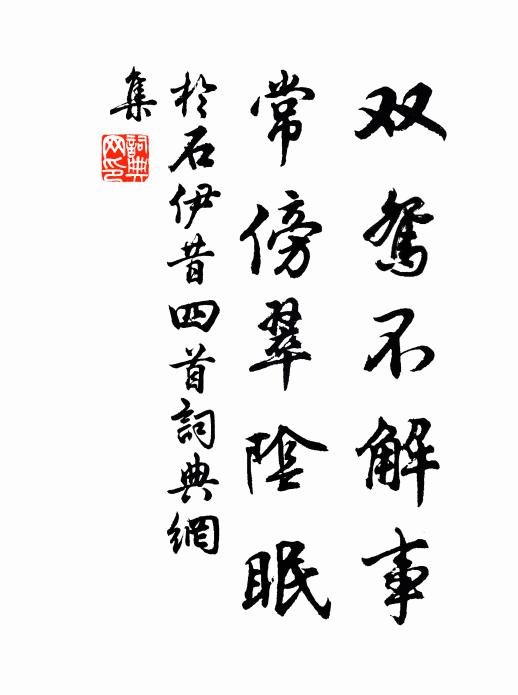 双鸳不解事
常傍翠陰眠
於石伊昔四首詞典網
集
詞典
网印